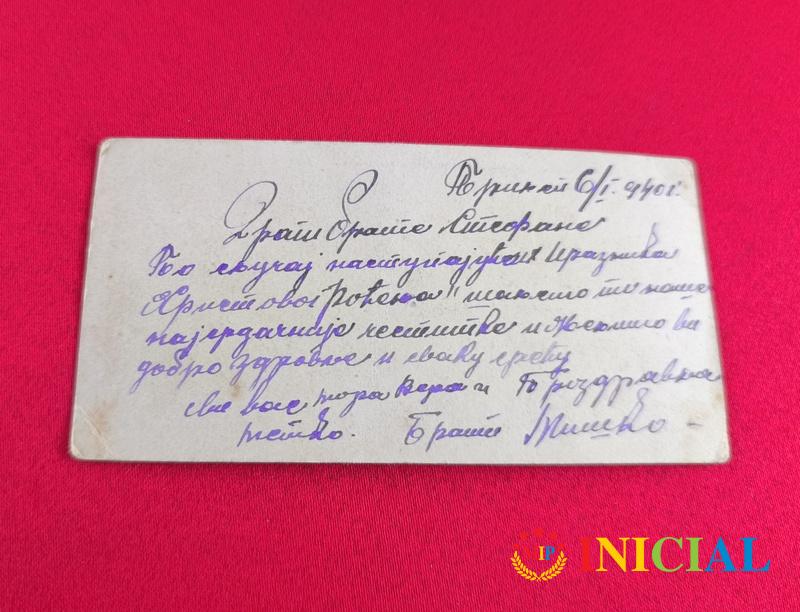 6/I. 940 г.
Драги брате Стефане
По случај наступајућих празника
Христовог Рођења" шаљемо ти наше
најсрдачније честитке и желимо ви
добро здравље и сваку срећу
све вас Вера и Поздравља
Брат Мишко -
IP INICIAL